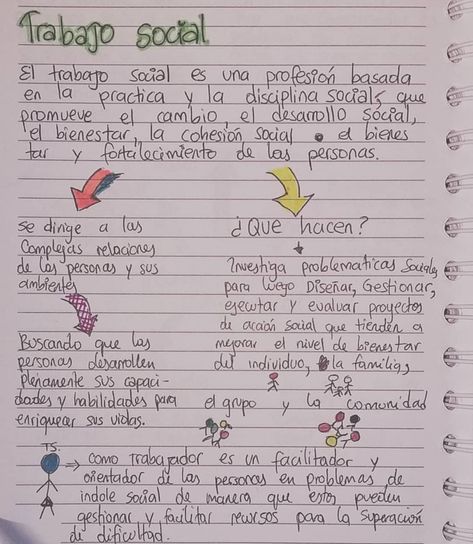 Trabajo social
El trabajo social es una profesión basada
en la practica y la disciplina social, que
promueve el cambio, el desarrollo social,
el bienestar, la cohesión social • el bienes
tar y fortalecimiento de las personas.
se dirige a las
Complejas relaciones
de las personas y sus
ambientes
Buscando que las
personas desarrollen
plenamente sus capaci-
dades y habilidades para
enriquecer sus vidas.
¿Que hacen?
Investiga problematicas sociales
para luego Diseñar, Gestionar,
ejecutar y evaluar proyectos
de acción social que tienden a
mejorar el nivel de bienestar
del individuo, la familia,
el grupo y la comunidad
TS.
como trabajador es un facilitador y
orientador de las personas en problemas de
indole social de manera que estos pueden
gestionar y facilitar recursos para la superación
de dificultad.